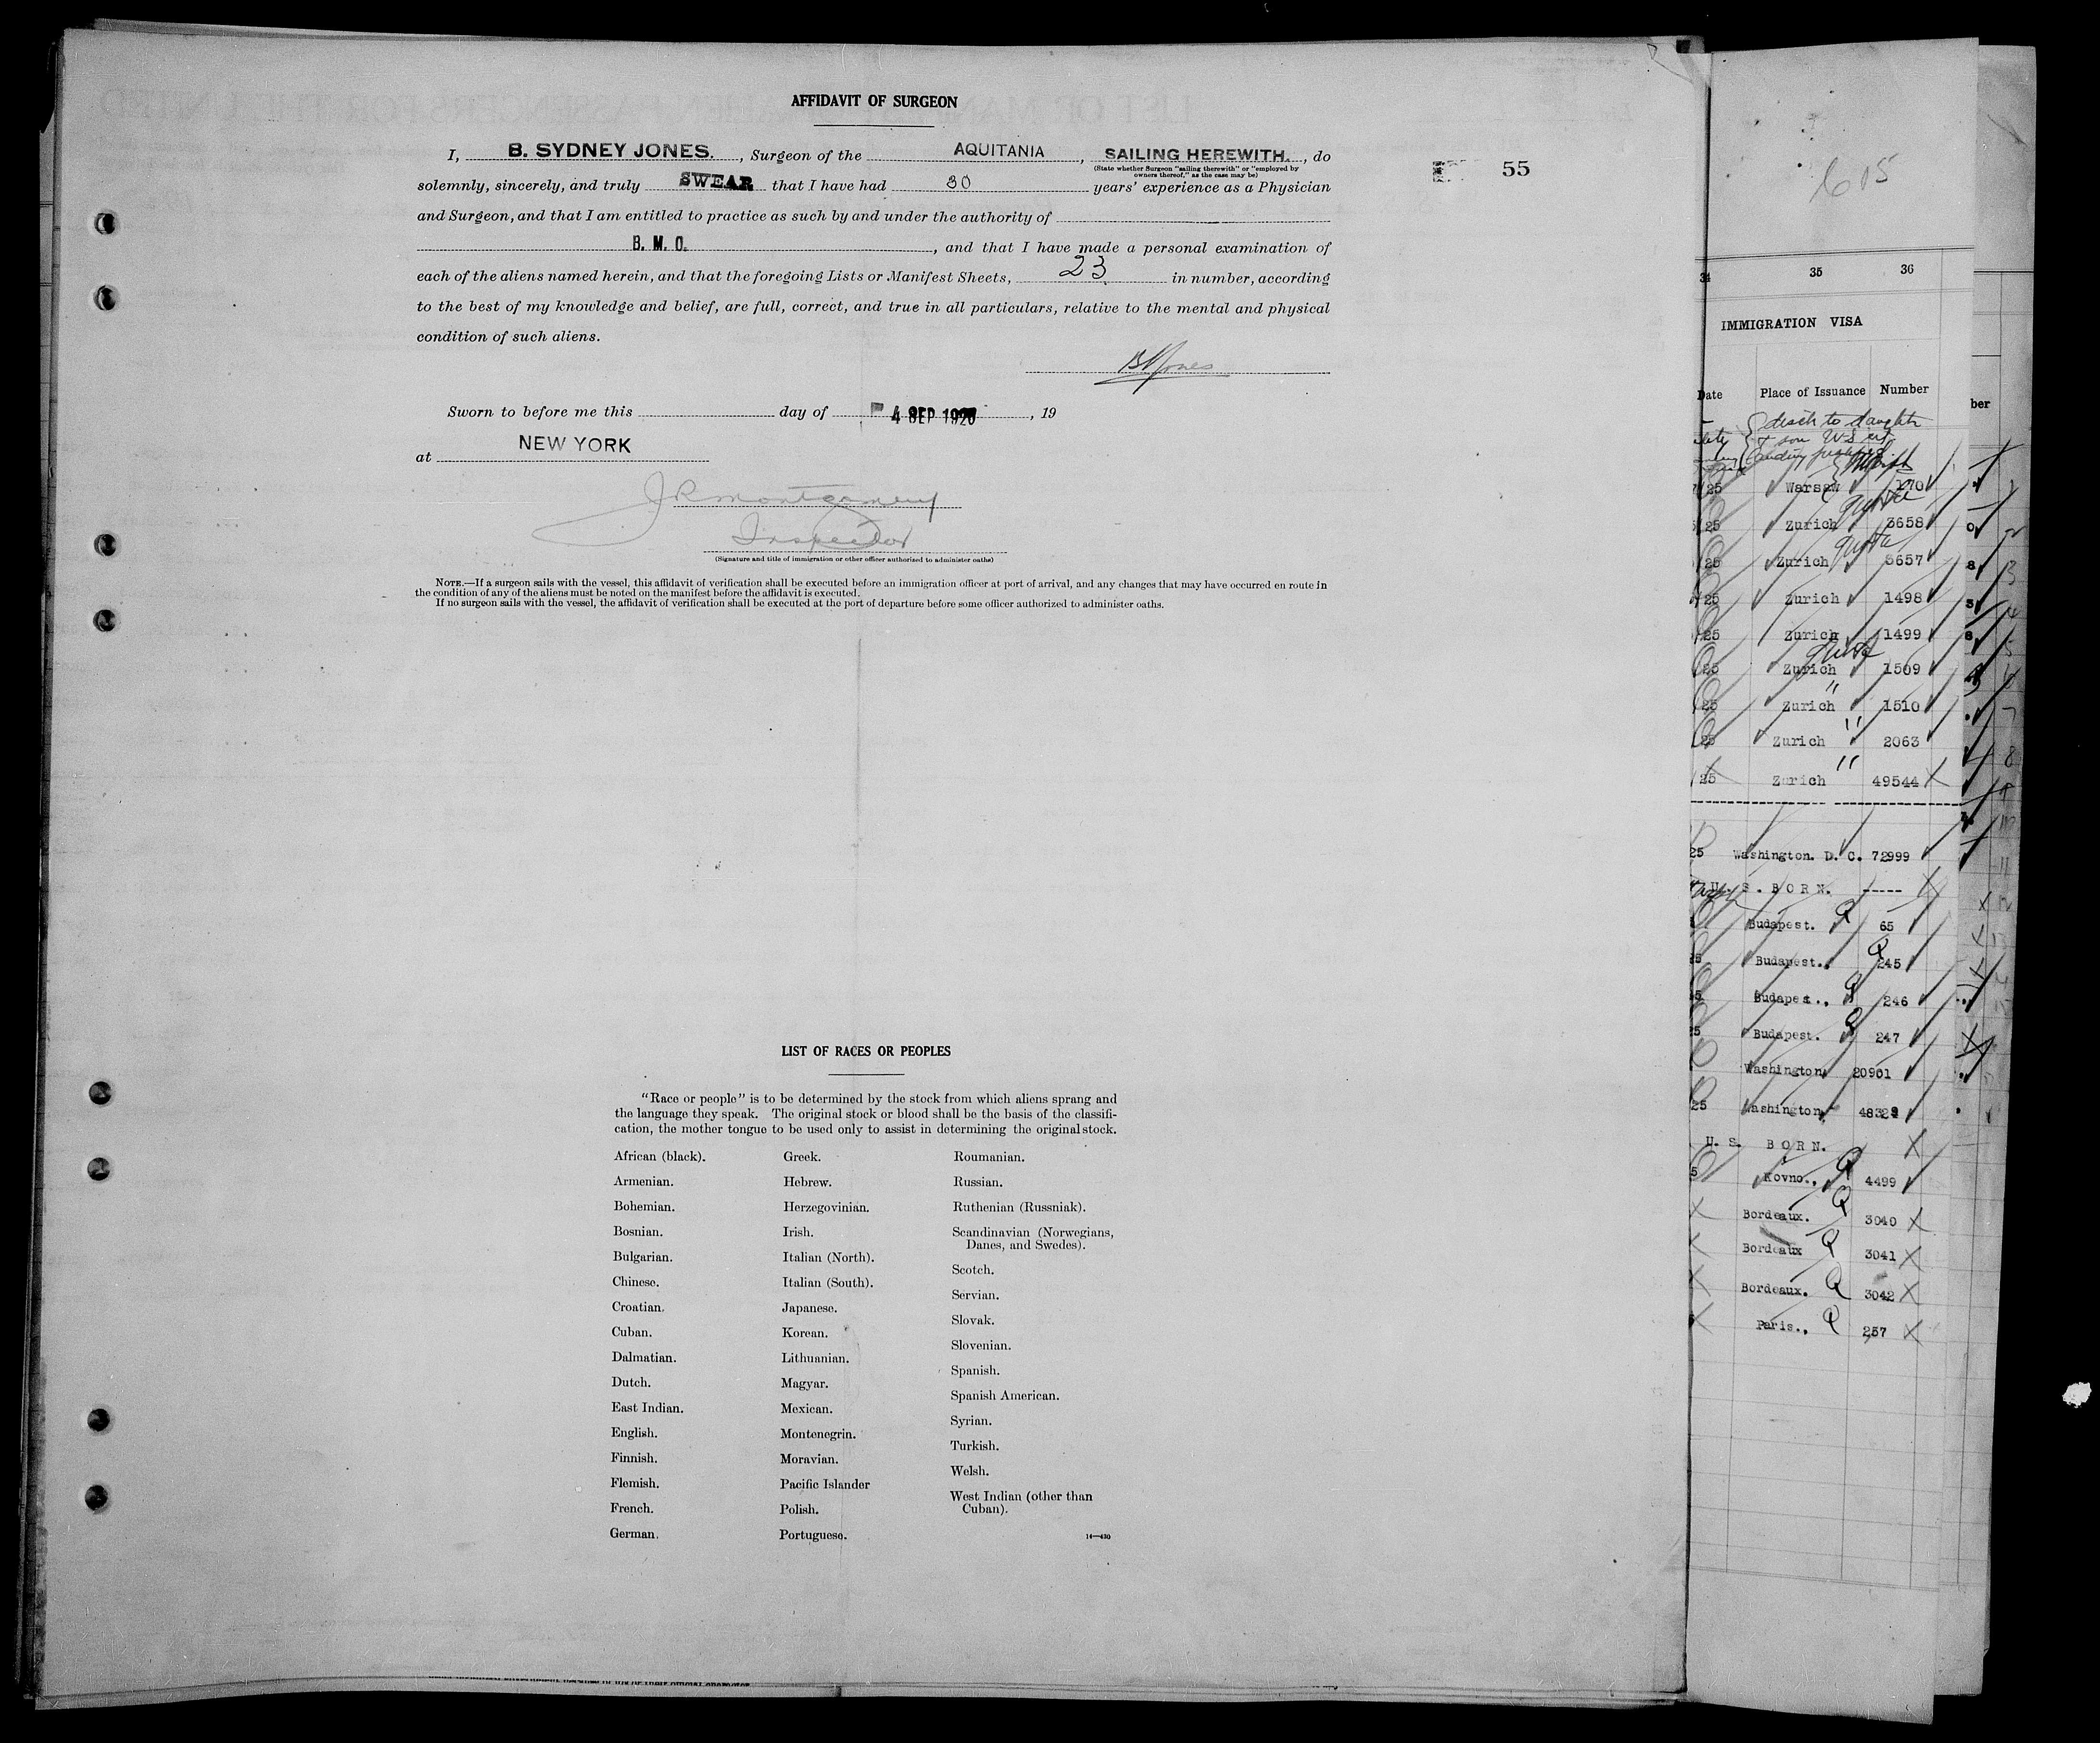 AFFIDAVIT OF SURGEON
I, B. SYDNEY JONES. , Surgeon of the AQUITANIA , SAILING HEREWITH. , do
(State whether Surgeon "sailing therewith" or "employed by
owners thereof," as the case may be)
55
solemnly, sincerely, and truly SWEAR that I have had 30 years' experience as a Physician
and Surgeon, and that I am entitled to practice as such by and under the authority of
B. M. O. , and that I have made a personal examination of
each of the aliens named herein, and that the foregoing Lists or Manifest Sheets, 23 in number, according
to the best of my knowledge and belief, are full, correct, and true in all particulars, relative to the mental and physical
condition of such aliens.
BSJones
Sworn to before me this day of 4 SEP 192 , 19
at NEW YORK
J R Montgomery
Inspector
(Signature and title of immigration or other officer authorized to administer oaths)
NOTE.—If a surgeon sails with the vessel, this affidavit of verification shall be executed before an immigration officer at port of arrival, and any changes that may have occurred en route in
the condition of any of the aliens must be noted on the manifest before the affidavit is executed.
If no surgeon sails with the vessel, the affidavit of verification shall be executed at the port of departure before some officer authorized to administer oaths.
LIST OF RACES OR PEOPLES
"Race or people" is to be determined by the stock from which aliens sprang and
the language they speak. The original stock or blood shall be the basis of the classifi-
cation, the mother tongue to be used only to assist in determining the original stock.
African (black).
Armenian.
Bohemian.
Bosnian.
Bulgarian.
Chinese.
Croatian.
Cuban.
Dalmatian.
Dutch.
East Indian.
English.
Finnish.
Flemish.
French.
German.
Greek.
Hebrew.
Herzegovinian.
Irish.
Italian (North).
Italian (South).
Japanese.
Korean.
Lithuanian.
Magyar.
Mexican.
Montenegrin.
Moravian.
Pacific Islander
Polish.
Portuguese.
Roumanian.
Russian.
Ruthenian (Russniak).
Scandinavian (Norwegians,
Danes, and Swedes).
Scotch.
Servian.
Slovak.
Slovenian.
Spanish.
Spanish American.
Syrian.
Turkish.
Welsh.
West Indian (other than
Cuban).
14—430
605
34 35 36
IMMIGRATION VISA
Date Place of Issuance Number
ber
disch to daughter
25 Warsaw 170
25 Zurich 3658
25 Zurich 3657
25 Zurich 1498
25 Zurich 1499
25 Zurich 1509
25 Zurich " 1510
25 Zurich " 2063
25 Zurich " 49544
25 Washington. D. C. 72999
U. S. BORN. -----
Budapest. Q 65
5 Budapest. Q 245
5 Budapest., Q 246
5 Budapest. Q 247
Washington. 20901
25 Washington
U. S. BORN.
5 Kovno., Q 4499
Bordeaux. Q 3040
Bordeaux Q 3041
Bordeaux. Q 3042
Paris., Q 257